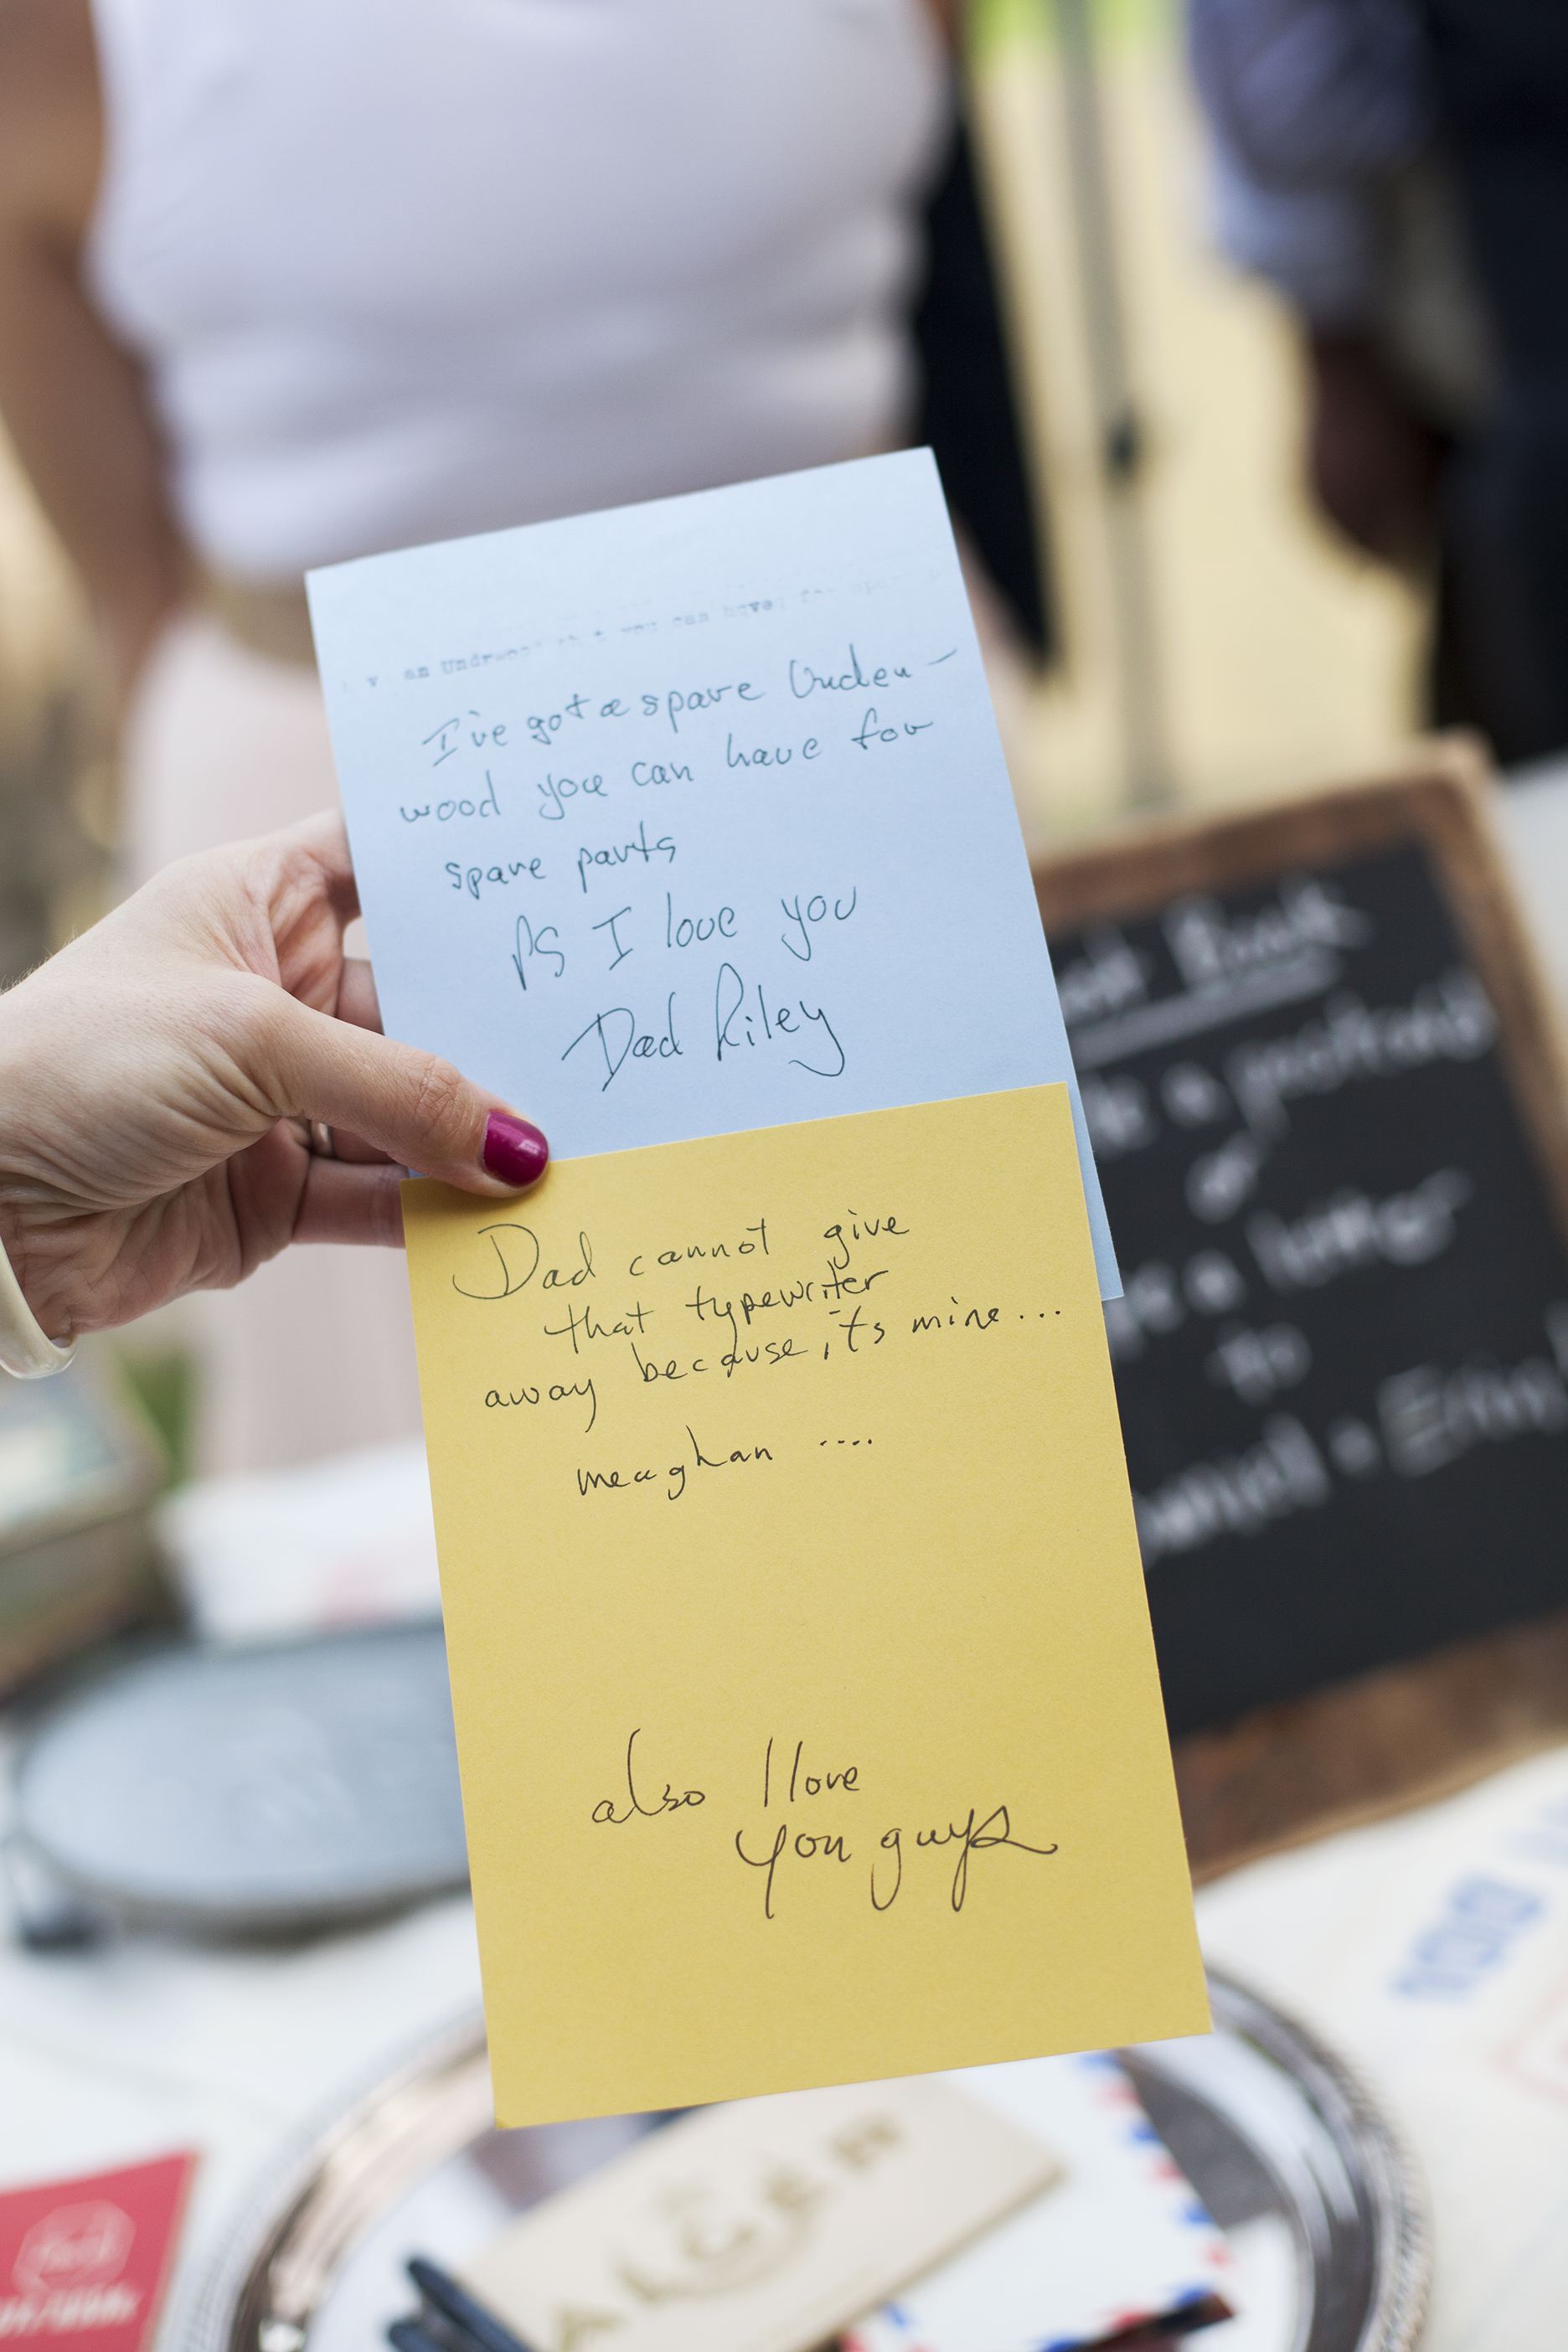 an Underwood that you can have for
I've got a spare Under-
wood you can have for
spare parts
PS I love you
Dad Riley
Dad cannot give
that typewriter
away because it's mine...
meaghan ....
also I love
you guys
Book
a postcard
or
a letter
to
Daniel & Erin
ALGER